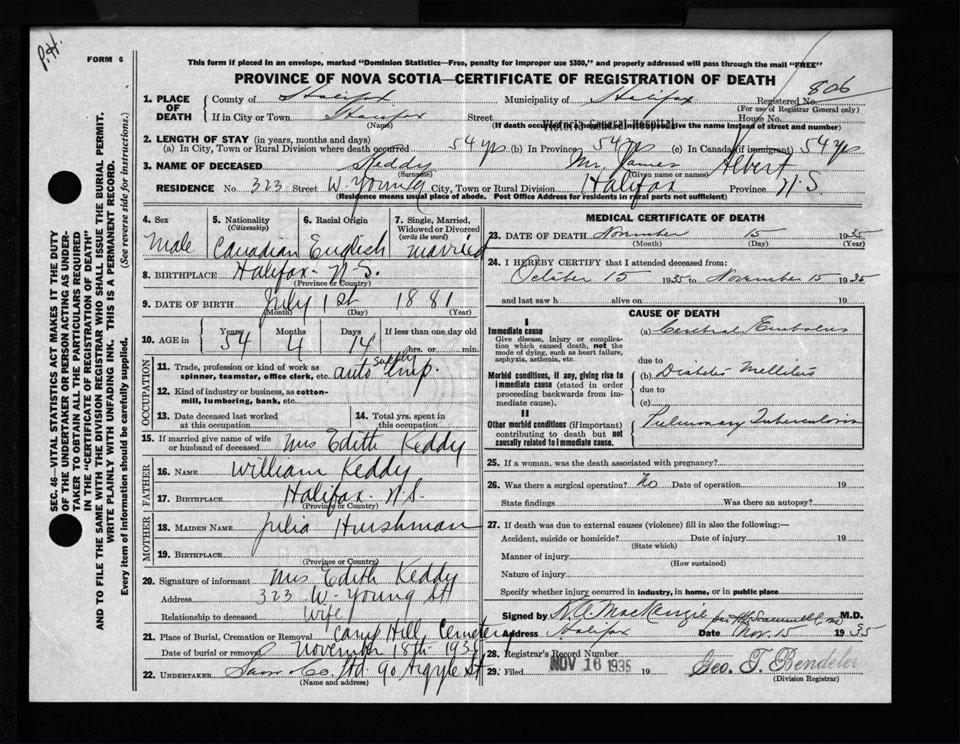 P.H.
FORM 6
This form if placed in an envelope, marked "Dominion Statistics—Free, penalty for improper use $300," and properly addressed will pass through the mail "FREE"
PROVINCE OF NOVA SCOTIA—CERTIFICATE OF REGISTRATION OF DEATH
806
1. PLACE OF DEATH
County of Halifax Municipality of Halifax Registered No.
(For use of Registrar General only)
If in City or Town Halifax Street House No.
(Name) (If death occurred Victoria General Hospital give the name instead of street and number)
2. LENGTH OF STAY (in years, months and days)
(a) In City, Town or Rural Division where death occurred 54 yrs (b) In Province 54 yrs (c) In Canada (if immigrant) 54 yrs
3. NAME OF DECEASED Keddy Mr. James Albert
(Surname) (Given name or names)
RESIDENCE No. 323 Street W. Young City, Town or Rural Division Halifax Province N.S
(Residence means usual place of abode. Post Office Address for residents in rural parts not sufficient)
4. Sex Male
5. Nationality (Citizenship) Canadian
6. Racial Origin English
7. Single, Married, Widowed or Divorced (write the word) Married
8. BIRTHPLACE Halifax - N.S.
(Province or Country)
9. DATE OF BIRTH July 1st 1881
(Month) (Day) (Year)
10. AGE in Years 54 Months 4 Days 14 If less than one day old hrs. or min.
OCCUPATION
11. Trade, profession or kind of work as spinner, teamster, office clerk, etc. auto supply emp.
12. Kind of industry or business, as cotton-mill, lumbering, bank, etc.
13. Date deceased last worked at this occupation
14. Total yrs. spent in this occupation
15. If married give name of wife or husband of deceased Mrs Edith Keddy
FATHER
16. NAME William Keddy
17. BIRTHPLACE Halifax - N.S.
(Province or Country)
MOTHER
18. MAIDEN NAME Julia Hurshman
19. BIRTHPLACE
(Province or Country)
20. Signature of informant Mrs Edith Keddy
Address 323 W. Young St
Relationship to deceased Wife
21. Place of Burial, Cremation or Removal Camp Hill Cemetery
Date of burial or removal November 18th 1935
22. UNDERTAKER Snow & Co. Ltd. 90 Argyle St
(Name and address)
MEDICAL CERTIFICATE OF DEATH
23. DATE OF DEATH November 15 1935
(Month) (Day) (Year)
24. I HEREBY CERTIFY that I attended deceased from:
October 15 1935 to November 15 1935
and last saw h alive on 19
CAUSE OF DEATH
I
Immediate cause
Give disease, injury or complication which caused death, not the mode of dying, such as heart failure, asphyxia, asthenia, etc.
(a) Cerebral Embolus
due to
Morbid conditions, if any, giving rise to immediate cause (stated in order proceeding backwards from immediate cause).
(b) Diabetes Mellitus
due to
(c)
II
Other morbid conditions (if important) contributing to death but not causally related to immediate cause.
Pulmonary Tuberculosis
25. If a woman, was the death associated with pregnancy?
26. Was there a surgical operation? No Date of operation 19
State findings Was there an autopsy?
27. If death was due to external causes (violence) fill in also the following:—
Accident, suicide or homicide? Date of injury 19
(State which)
Manner of injury
(How sustained)
Nature of injury
Specify whether injury occurred in industry, in home, or in public place
Signed by MacKenzie per M.D.
Address Halifax Date Nov. 15 1935
28. Registrar's Record Number
29. Filed NOV 16 1935 19 Geo. T. Bendeler
(Division Registrar)
SEC. 46—VITAL STATISTICS ACT MAKES IT THE DUTY
OF THE UNDERTAKER OR PERSON ACTING AS UNDER-
TAKER TO OBTAIN ALL THE PARTICULARS REQUIRED
IN THE "CERTIFICATE OF REGISTRATION OF DEATH"
AND TO FILE THE SAME WITH THE DIVISION REGISTRAR WHO SHALL ISSUE THE BURIAL PERMIT.
WRITE PLAINLY WITH UNFADING INK. THIS IS A PERMANENT RECORD.
Every item of information should be carefully supplied. (See reverse side for instructions.)